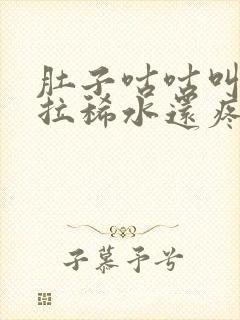 肚子咕咕叫
拉稀水還疼
子慕予兮